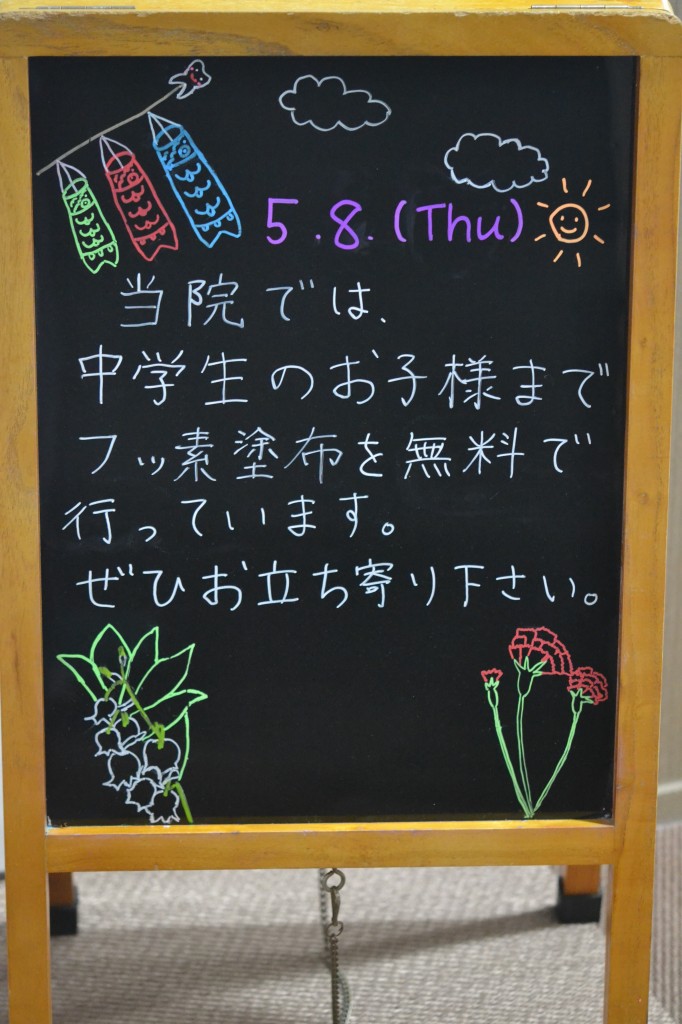 5.8.(Thu)
当院では、
中学生のお子様まで
フッ素塗布を無料で
行っています。
ぜひお立ち寄り下さい。